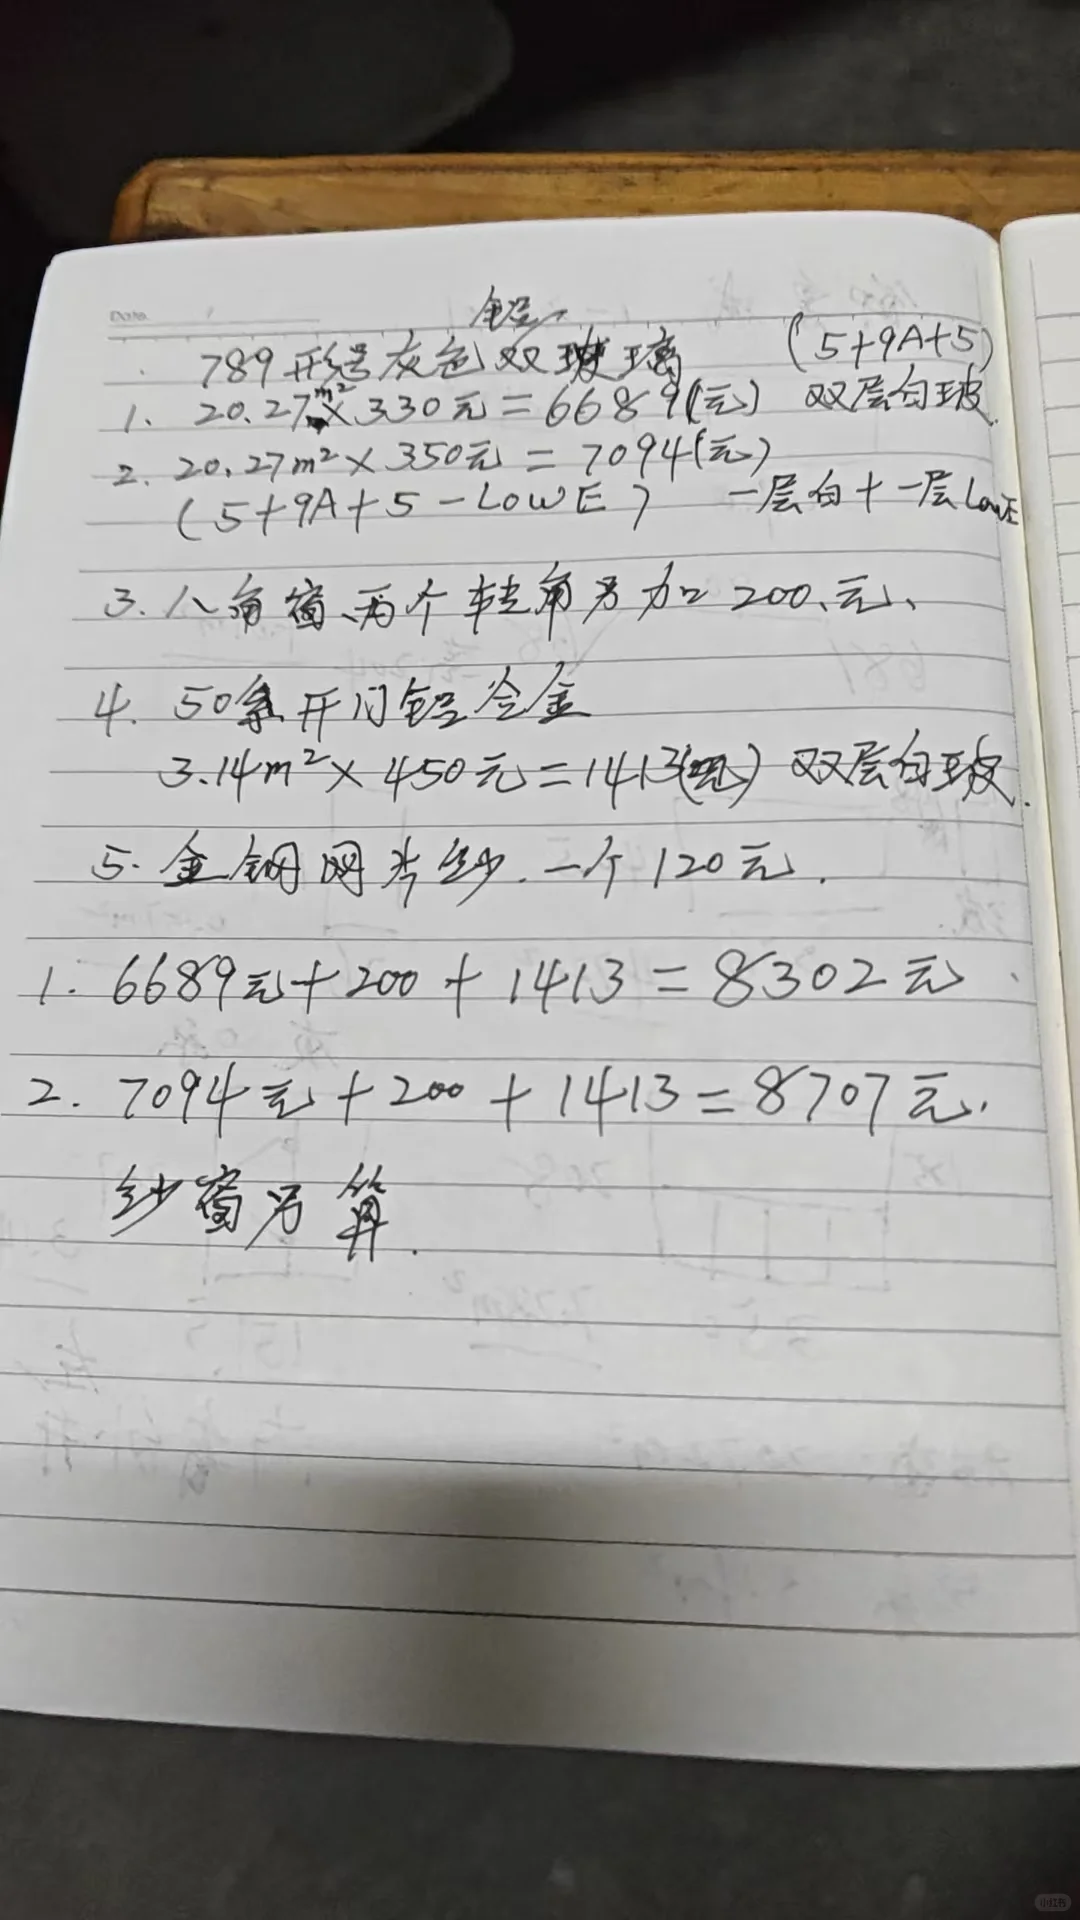 Date.
铝
789形号灰色双玻璃 (5+9A+5)
1. 20.27m²×330元=6689(元) 双层白玻
2. 20.27m²×350元=7094(元)
(5+9A+5-LOWE) 一层白+一层LowE
3. 八角窗、两个转角另加200、元、
4. 50系开门铝合金
3.14m²×450元=1413(元) 双层白玻.
5. 金钢网纱. 一个120元.
1. 6689元+200+1413=8302元
2. 7094元+200+1413=8707元.
纱窗另算.
小红书